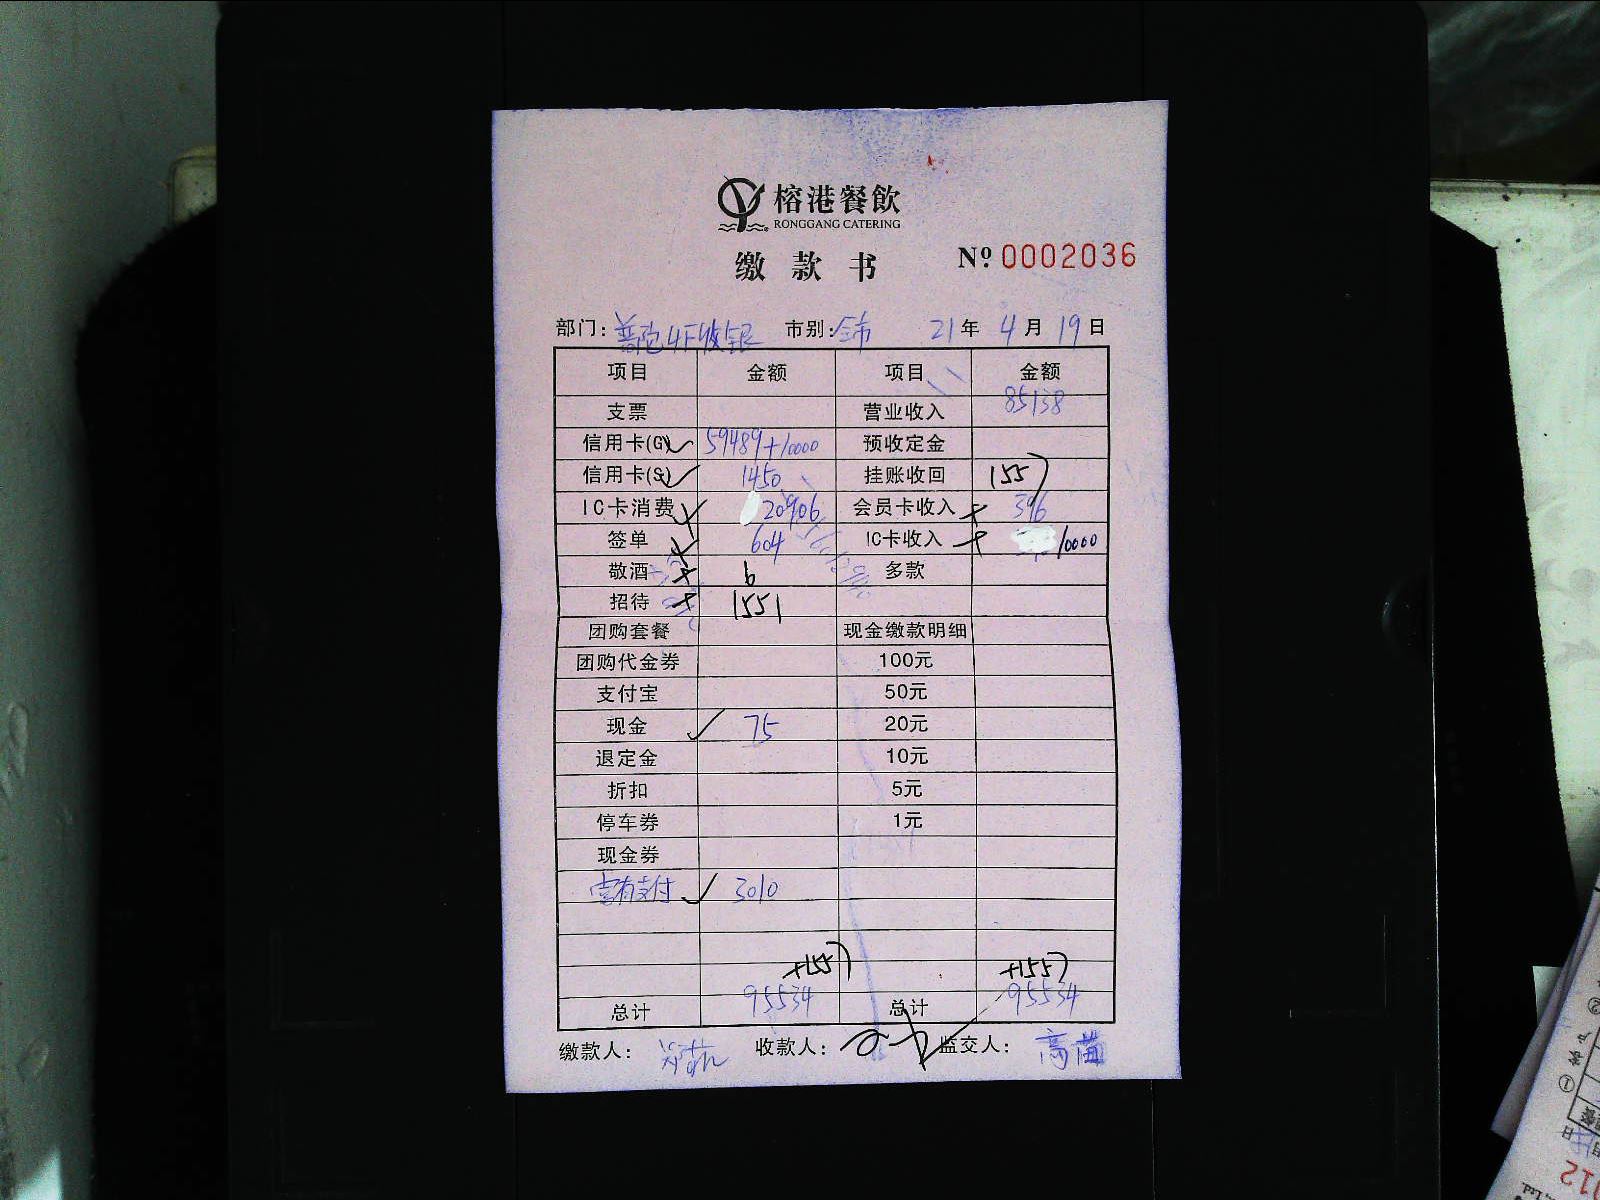 榕港餐飲
RONGGANG CATERING
缴款书 Nº 0002036
部门: 普陀4F收银 市别: 全市 21年 4月 19日
项目 金额 项目 金额
支票 营业收入 85138
信用卡(G) 59489+10000 预收定金
信用卡(S) 1450 挂账收回 1557
IC卡消费 20906 会员卡收入 396
签单 604 IC卡收入 10000
敬酒 6 多款
招待 1551
团购套餐 现金缴款明细
团购代金券 100元
支付宝 50元
现金 75 20元
退定金 10元
折扣 5元
停车券 1元
现金券
支付 3010
+1557 +1557
总计 95534 总计 95534
缴款人: 收款人: 监交人: 高